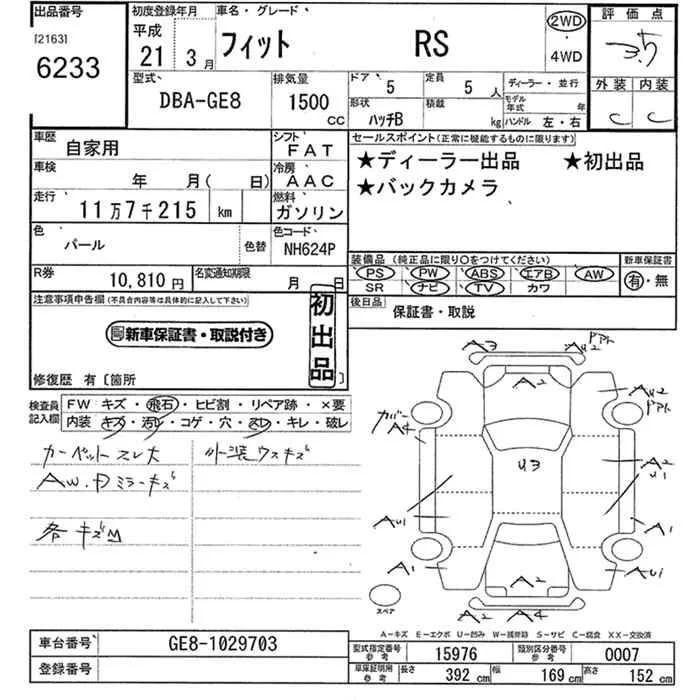 出品番号
[2163]
6233
初度登録年月
平成
21 3 月
車名・グレード
フィット RS
2WD
・
4WD
評価点
3.5
外装 内装
C C
型式
DBA-GE8
排気量
1500
CC
ドア
5
定員
5 人
形状
ハッチB
積載
kg
ディーラー・並行
モデル年式 年
ハンドル 左・右
車歴
自家用
シフト
FAT
車検
年 月( 日)
冷房
AAC
走行
11万7千215 km
燃料
ガソリン
色
パール
色替
色コード
NH624P
R券
10,810 円
名変通知期限
月 日
セールスポイント(正常に機能するものに限ります)
★ディーラー出品 ★初出品
★バックカメラ
装備品 (純正品に限り○をつけてください)
PS PW ABS エアB AW
SR ナビ TV カワ
新車保証書
有・無
後日品
保証書・取説
注意事項申告欄(不具合内容等は具体的に記入して下さい)
新車保証書・取説付き
初出品
修復歴 有〔箇所 〕
検査員記入欄
FW キズ・飛石・ヒビ割・リペア跡・×要
内装 キズ・汚レ・コゲ・穴・スレ・キレ・破レ
カーペットスレ大
外装ウスキズ
AW.Dミラーキズ
各キズM
A3
ドアト
AU2
A2
カバー
A4
AU2
ドアト
U3
A2
U1
AU1
A1
A1
AU1
A2
スペア
A2 A4
A-キズ E-エクボ U-凹み W-補修跡 S-サビ C-腐食 XX-交換済
車台番号
GE8-1029703
登録番号
型式指定番号
参考
15976
類別区分番号
参考
0007
車庫証明用
参考
長さ
392 cm
幅
169 cm
高さ
152 cm